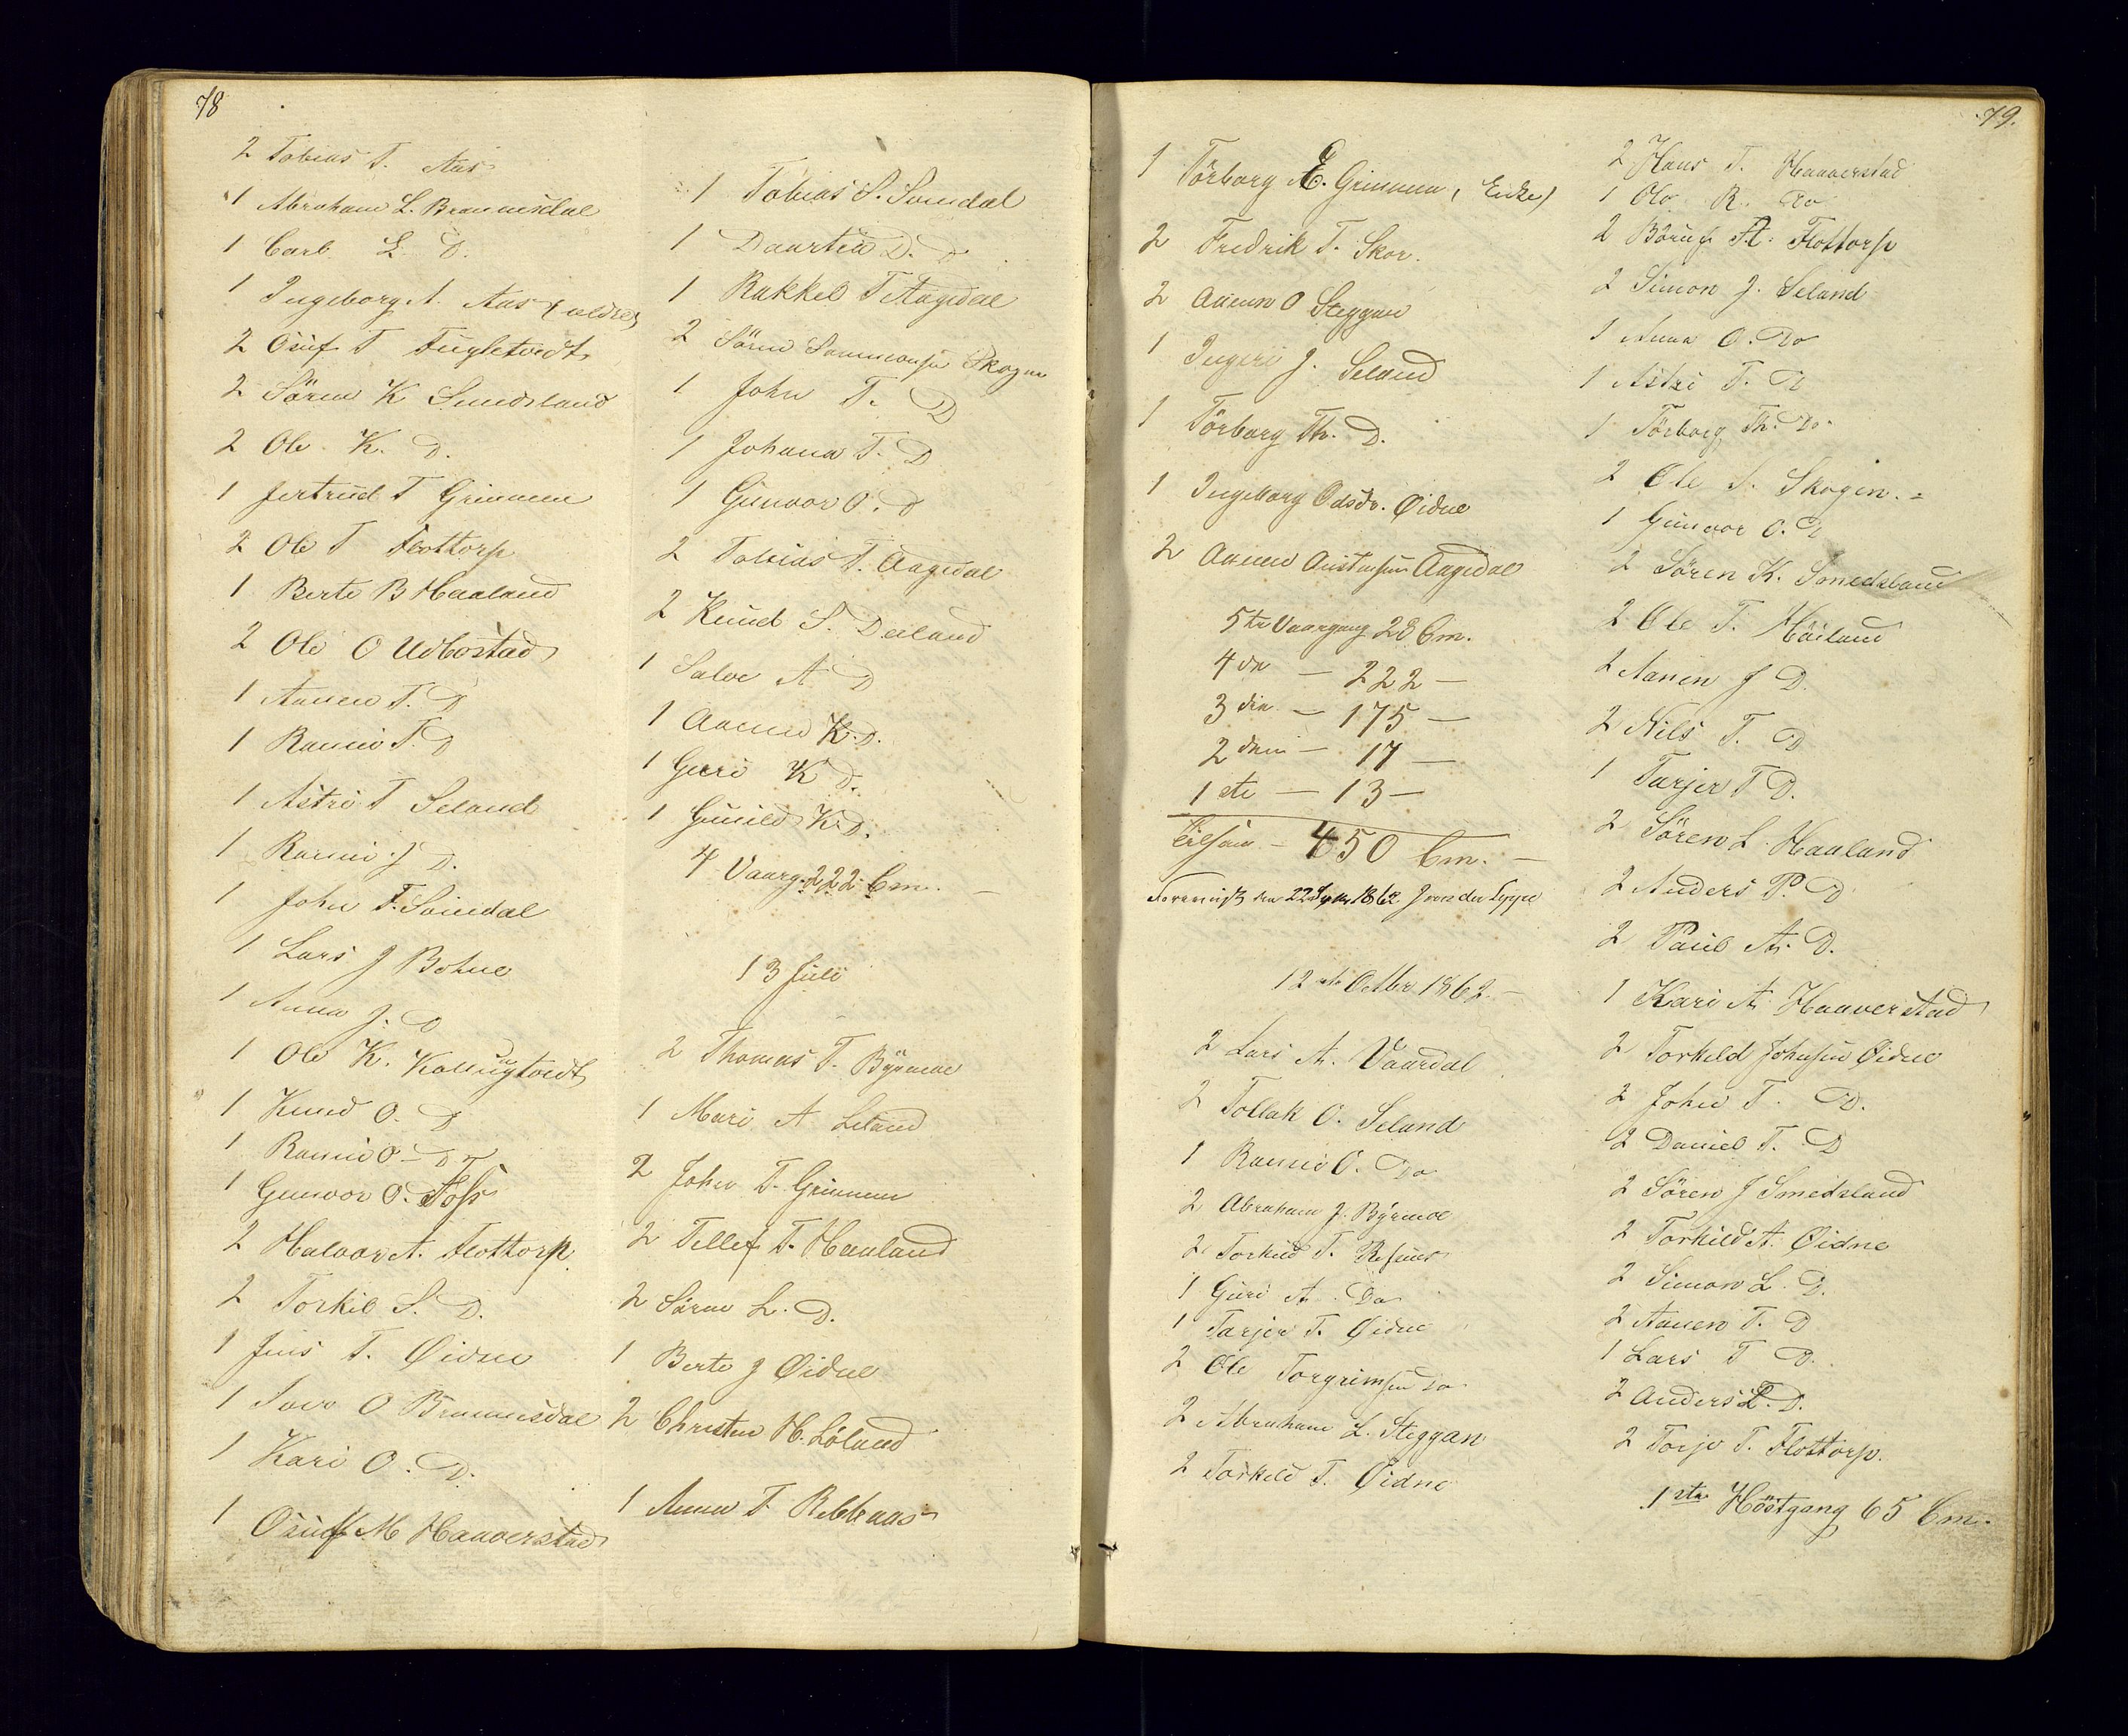 78
2 Tobias T. Aas
1 Abraham L. Brunnesdal
1 Carl L. D.
1 Ingeborg A. Aas (ældre)
2 Osuf T Fugletvedt
2 Sören K Smedsland
2 Ole K. D.
1 Jertrud T Grimmen
2 Ole T Flottorp
1 Berte B Haaland
2 Ole O Udbostad
1 Aanen T. D
1 Rannei T. D
1 Astri T Seland
1 Rannei J D.
1 John T. Soindal
1 Lars J Bohne
1 Anna J. D
1 Ole K. Kallungtvedt
1 Knud O. D
1 Rannei O. D.
1 Gunvor O. Foss
2 Halvor A. Flottorp
2 Torkil S. D.
1 Jens T. Øidne
1 Siver O Brunnesdal
1 Kari O. D.
1 Osuf M Haaverstad
1 Tobias S. Soindal
1 Daartea D. D
1 Rakkel T Aagedal
2 Sören Sammonsen Skogen
1 John T. D
1 Johana T. D
1 Gunvor O. D
2 Tobias T. Aagedal
2 Knud S. Deiland
1 Salve A D
1 Aanen K. D.
1 Guri K D.
1 Gunild K. D.
4 Vaarg. 222 Cm. —
13 Juli
2 Thomas T. Byrmoe
1 Mari A Seland
2 John T. Grimmen
2 Tellef T. Haaland
2 Sören L. D.
1 Berte J Øidne
2 Christen H. Löland
1 Anna T. Ribbaas
79.
1 Törborg E. Grimmen (Enke)
2 Fredrik T. Skor.
2 Aanen O Steggan
1 Ingeri J. Seland
1 Törborg Th. D.
1 Ingeborg Odsdr. Øidne
2 Aanen Austensen Aagedal
5te Vaargang 28 Cm.
4de — 222 —
3die — 175 —
2den — 17 —
1ste — 13 —
Tilsam — 450 Cm. —
12te Octbr 1862. —
2 Lars A. Vaardal
2 Tollak O. Seland
1 Rannei O. Do
2 Abraham J. Byrmoe
2 Torkild T. Refsnes
1 Guri A. Do
1 Tarjer T. Øidne
2 Ole Torgrimsen do
2 Abraham L. Steggan
2 Torkeld T. Øidne
2 Hans T. Haaverstad
1 Ole R. Do
2 Böruf A. Flottorp
2 Simon J. Seland
1 Anna O. Do
1 Astri T. D
1 Törborg Th. Do.
2 Ole S. Skogen.
1 Gunvor O. D
2 Sören K. Smedsland
2 Ole T. Höiland
2 Aanen J D.
2 Nils T. D
1 Tarjer T D.
2 Sören L. Haaland
2 Anders P. D
2 Paul A. D.
1 Kari A. Haaverstad
2 Torkeld Johnsen Øidne
2 John T. D.
2 Daniel T. D
2 Sören J Smedsland
2 Torkild A. Øidne
2 Simon L. D.
2 Aanen T. D
1 Lars T D.
2 Anders L. D.
2 Torje T. Flottorp.
1ste Höstgang 65 Cm.